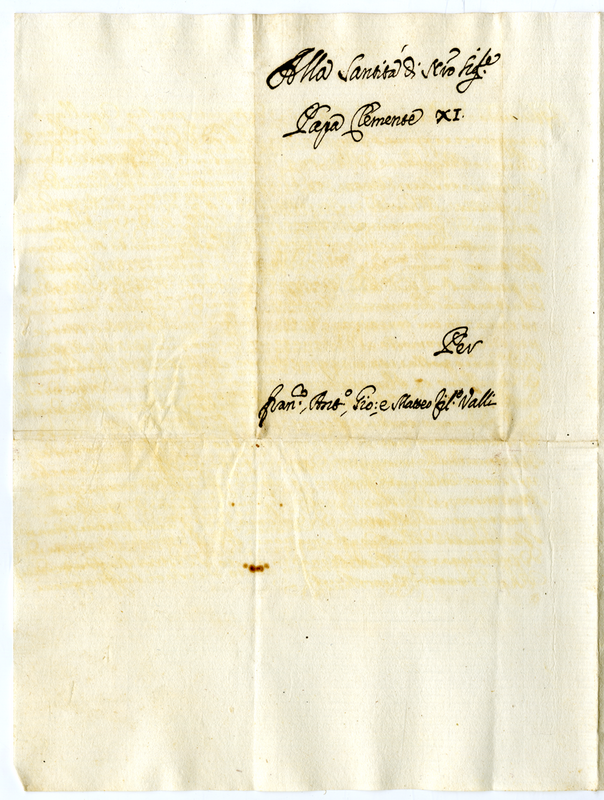 Alla Santità di N̄ro Sig.re
Papa Clemente XI.
Per
Fran.co, Ant.o, Gio: e Matteo fil.i Valli